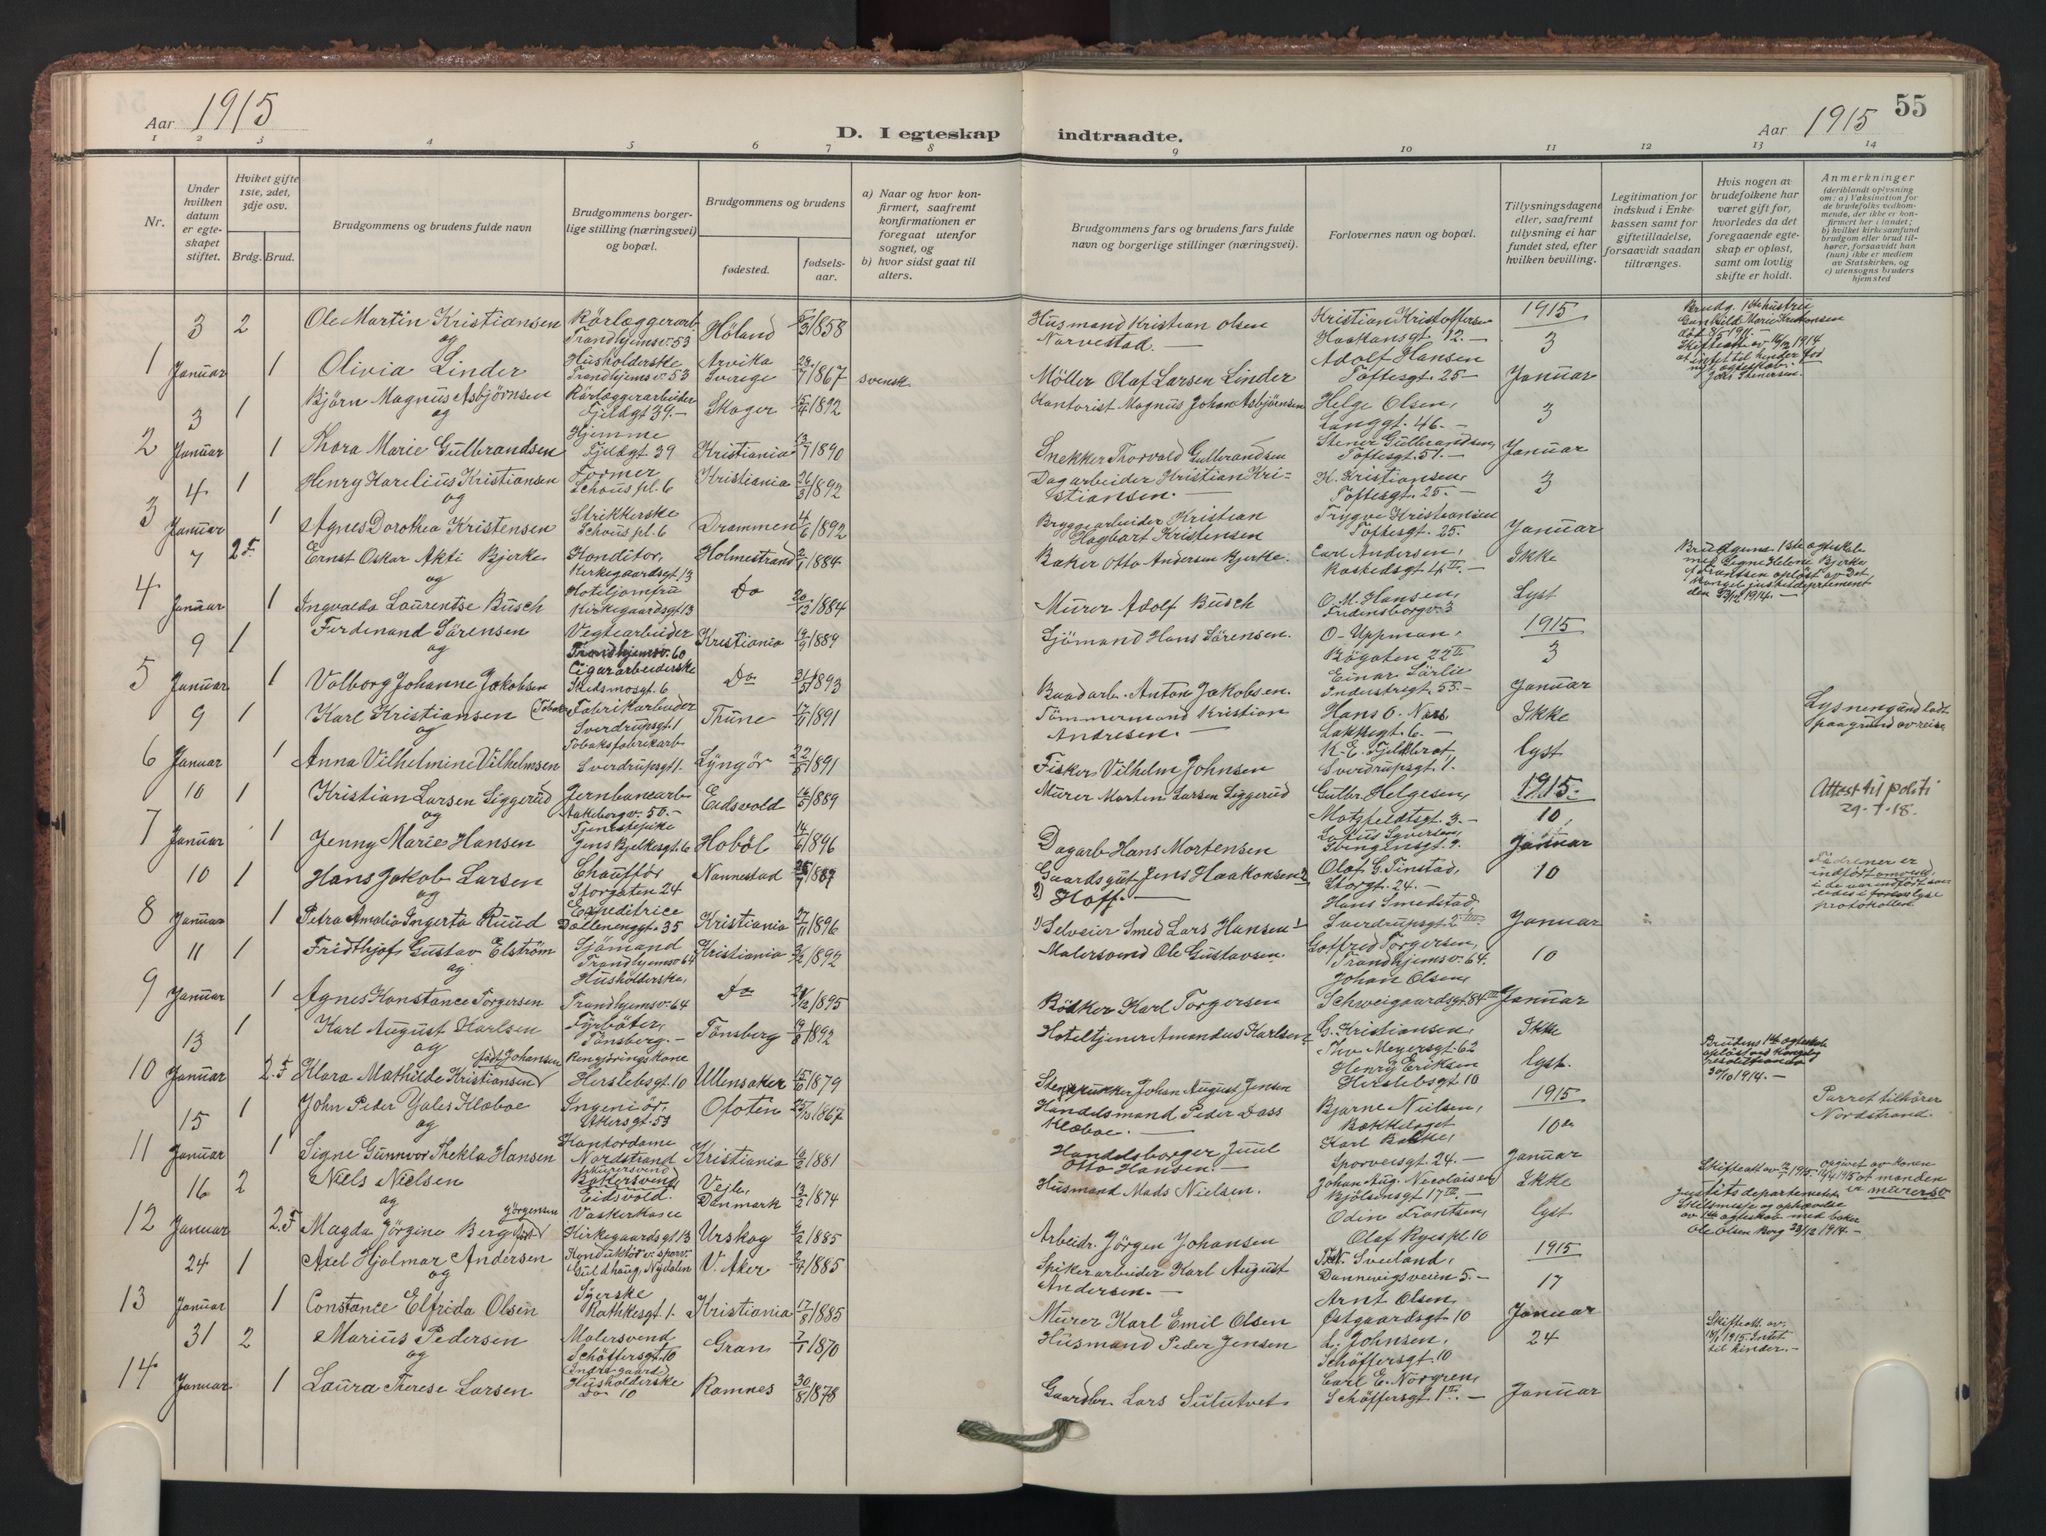 Aar 1915
D. I egteskap indtraadte.
Aar 1915
55
1 2 3 4 5 6 7 8 9 10 11 12 13 14
Nr.
Under hvilken datum er egteskapet stiftet.
Hviket gifte 1ste, 2det, 3dje osv.
Brdg. Brud.
Brudgommens og brudens fulde navn
Brudgommens borgerlige stilling (næringsvei) og bopæl.
Brudgommens og brudens
fødested.
fødselsaar.
a) Naar og hvor konfirmert, saafremt konfirmationen er foregaat utenfor sognet, og
b) hvor sidst gaat til alters.
Brudgommens fars og brudens fars fulde navn og borgerlige stillinger (næringsvei).
Forlovernes navn og bopæl.
Tillysningsdagene eller, saafremt tillysning ei har fundet sted, efter hvilken bevilling.
Legitimation for indskud i Enkekassen samt for giftetilladelse, forsaavidt saadan tiltrænges.
Hvis nogen av brudefolkene har været gift før, hvorledes da det foregaaende egteskap er opløst, samt om lovlig skifte er holdt.
Anmerkninger (deriblandt oplysning om: a) Vaksination for de brudefolks vedkommende, der ikke er konfirmert her i landet; b) hvilket kirkesamfund brudgom eller brud tilhører, forsaavidt han (hun) ikke er medlem av Statskirken, og c) utensogns bruders hjemsted
1 3 Januar 2 Ole Martin Kristiansen Rörlæggerarb. Trondhjemsv. 53 Höland 1858 Husmand Kristian Olsen Narvestad. Kristian Kristoffersen Haakonsgt. 12. 1915 3
og
1 Olivia Linder Husholderske Trondhjemsv 53 Arvika Sverige 29/7 1867 svensk Möller Olaf Larsen Linder Adolf Hansen Toftesgt. 25 Januar
Brudg. 1ste hustru Gunhild Marie
2 3 Januar 1 Björn Magnus Asbjørnsen Rörlæggerarbeider Fjeldgt 39. Skoger 15/4 1892 Kontorist Magnus Johan Asbjørnsen Helge Olsen, Langgt. 46. 3
og
1 Thora Marie Gulbrandsen Hjemme Fjeldgt 39 Kristiania 13/7 1890 Snekker Thorvald Gulbrandsen Stener Gulbrandsen, Toftesgt. 51. Januar
3 4 Januar 1 Henry Karelius Kristiansen Former Schous pl. 6 Kristiania 26/3 1892 Dagarbeider Kristian Kristiansen. K. Kristiansen, Toftesgt. 25. 3
og
1 Agnes Dorothea Kristensen Strikkerske Schous pl. 6 Drammen 4/6 1892 Bryggearbeider Kristian Hagbart Kristensen Trygve Kristiansen Toftesgt. 25. Januar
4 7 Januar 2 F. Ernst Oskar Akti Bjerke Konditor, Kirkegaardsgt 13 Holmestrand 2/1 1884 Baker Otto Andersen Bjerke. Carl Andersen, 4 II. Ikke
og
1 Ingvalda Laurentse Busch Hoteljomfru Kirkegaardsgt 13 Do 20/12 1884 Murer Adolf Busch O. M. Hansen, Fredensborgv. 3 Lyst
5 9 Januar 1 Ferdinand Sörensen Vegtearbeider Trondhjemsv. 60 Kristiania 9/9 1889 Sjömand Hans Sörensen. O. Uppman, Bögaten 22 II 1915 3
og
1 Valborg Johanne Jakobsen Cigararbeiderske Skedsmogt. 6 Do 31/5 1893 Baadarb. Anton Jakobsen. Einar Sörlie Industrigt. 55. Januar
6 9 Januar 1 Karl Kristiansen (Tobaks Fabrikarbeider Sverdrupsgt. 1 Thune 17/11 1891 Tömmermand Kristian Andresen. Hans O. Lakkegt. 6. Ikke
og
1 Anna Vilhelmine Vilhelmsen Tobaksfabrikarb Sverdrupsgt 1. Lyngör 22/8 1891 Fisker Vilhelm Johnsen K. E. Fjeldbrot Sverdrupsgt. 1. lyst
Lysnengand
paa grund av reise
7 10 Januar 1 Kristian Larsen Siggerud Jernbanearb Aakebergv. 50. Eidsvold 1889 Murer Morten Larsen Siggerud Gulbr. Helgesen, Motzfeldtsgt. 3. 1915. 10.
og
1 Jenny Marie Hansen Tjenestepike Jens Bjelkesgt. 6 Hoböl 14/6 1896 Dagarb Hans Mortensen Januar
Attest til politi 29.1.18.
8 10 Januar 1 Hans Jakob Larsen Chauffør Storgaten 24 Nannestad 1887 Gaardsgut Jens Haakonsen 2) Hoff. Olaf G. Finstad, Storgt. 24. 10
og
1 Petra Amalia Ingerta Ruud Expeditrice Dælenenggt. 35 Kristiania 27/11 1896 1) Selveier Smed Lars Hansen 1 Hans Smedstad, Sverdrupsgt. 2 III Januar
Fædrene er indført omvendt
protokollen
9 11 Januar 1 Fridthjof Gustav Elström Sjömand Trondhjemsv 64 Kristiania 3/2 1892 Malersvend Ole Gustavsen. Gotfred Torgersen, Trondhjemsv. 64. 10
og
1 Agnes Konstance Torgersen Husholderske, Trondhjemsv. 64 Do 1895 Bödker Karl Torgersen Johan Olsen, Schweigaardsgt 84 III Januar
10 13 Januar 1 Karl August Karlsen Fyrböter, Tönsberg. Tönsberg 19/8 1892 Hoteltjener Amandus Karlsen G. Kristiansen, Thv. Meyersgt. 62 Ikke
og
2. F Klara Mathilde Kristiansen född Johansen Rengjöringskone Herslebsgt. 10 Ullensaker 15/6 1879 Johan August Jensen Henry Eriksen Herslebsgt. 10 lyst.
Brudens 1ste egteskab opløst ved kongelig resolution av 30/10 1914.
11 15 Januar 1 John Peder Yales Klæboe Ingeniör, Akersgt. 53 Ofoten 25/10 1867 Handelsmand Peder Dass Klæboe. Bjarne Nielsen, Bækkelaget 1915 10de
og
1 Signe Gunnvor Thekla Hansen Kontordame Nordstrand Kristiania 1881 Handelsborger Juul Otto Hansen. Karl Sporveisgt. 24. Januar
Parret tilhører Nordstrand.
12 16 Januar 2 Niels Nielsen Murersvend Bakersvend Eidsvold. Vejle, Danmark 13/2 1874 Husmand Mads Nielsen. Johan Aug. Nicolaisen Bjölsensgt 17 III. Ikke
og
2. F Magda Jörgine Berg född Jörgensen Vaskerkone Kirkegaardsgt 13 Urskog 6/2 1885 Arbeidr. Jörgen Johansen Odin Frantsen, Olaf Ryes pl 10 lyst
Skifteatt av 7/1 1915
opgivet av konen 10/4 1915 at manden er murersv
Justitsdepartementets
Skilsmisse og ophævelse av 1ste egteskab med baker Ole Olsen Berg 23/12 1914.
13 24 Januar 1 Axel Hjalmar Andersen Konduktör v. sporv. Guldhaug, Nydalen V. Aker 2/7 1885 Spikerarbeider Karl August Andersen. N. Sveiland, Dannevigsveien 5. 1915 17
og
1 Constance Elfrida Olsen Syerske Rathkesgt 1. Kristiania 17/8 1885 Murer Karl Emil Olsen Arnt Olsen Östgaardsgt 10 Januar
14 31 Januar 2 Marius Pedersen Malersvend Schöffersgt. 10 Gran 7/1 1870 Husmand Peder Jensen L. Johnsen, Schöffersgt. 10 24
og
1 Laura Therese Larsen Husholderske Do 10 Ramnes 30/8 1878 Gaardbr. Lars Carl E. Norgren, Schöffersgt. 1 II. Januar
Skifteatt. av 1915. Intet til hinder.